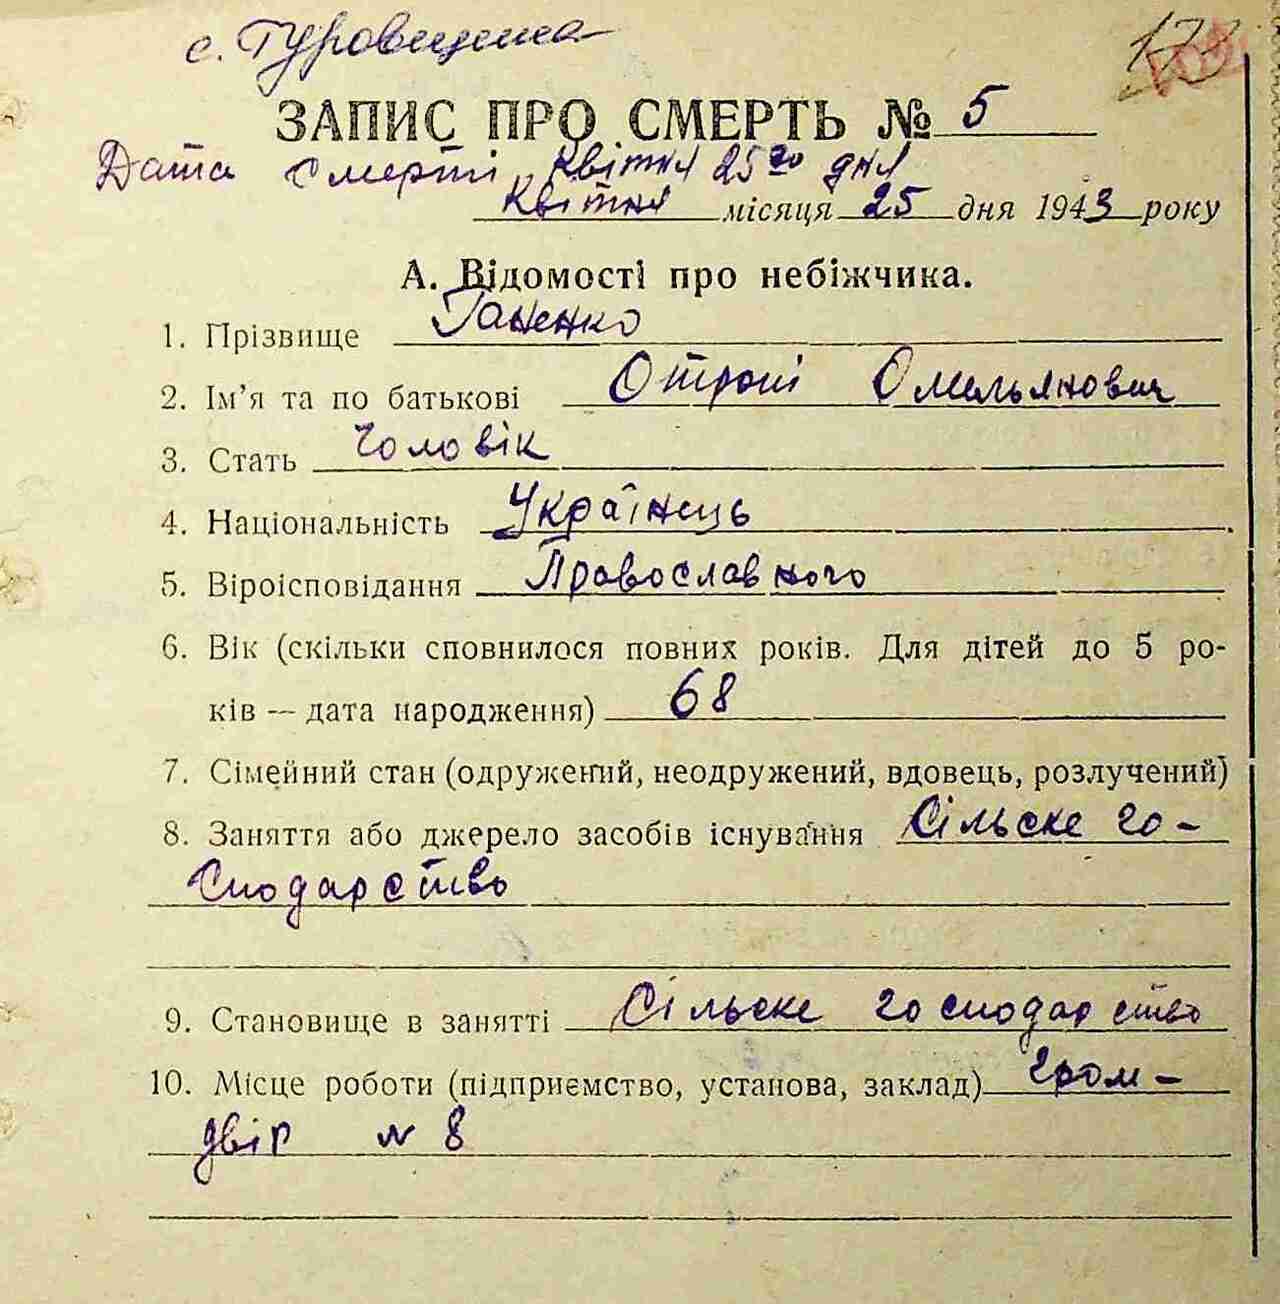 с. Туровщина
173
ЗАПИС ПРО СМЕРТЬ № 5
Дата смерті, квітня 25го дня
квітня місяця 25 дня 1943 року
А. Відомості про небіжчика.
1. Прізвище Ганенко
2. Ім’я та по батькові Отрохі Омельянович
3. Стать Чоловік
4. Національність Українець
5. Віроісповідання Православного
6. Вік (скільки сповнилося повних років. Для дітей до 5 ро-
ків — дата народження) 68
7. Сімейний стан (одружений, неодружений, вдовець, розлучений)
8. Заняття або джерело засобів існування Сільске го-
сподарство
9. Становище в занятті Сільске господарство
10. Місце роботи (підприємство, установа, заклад) гром-
двір № 8